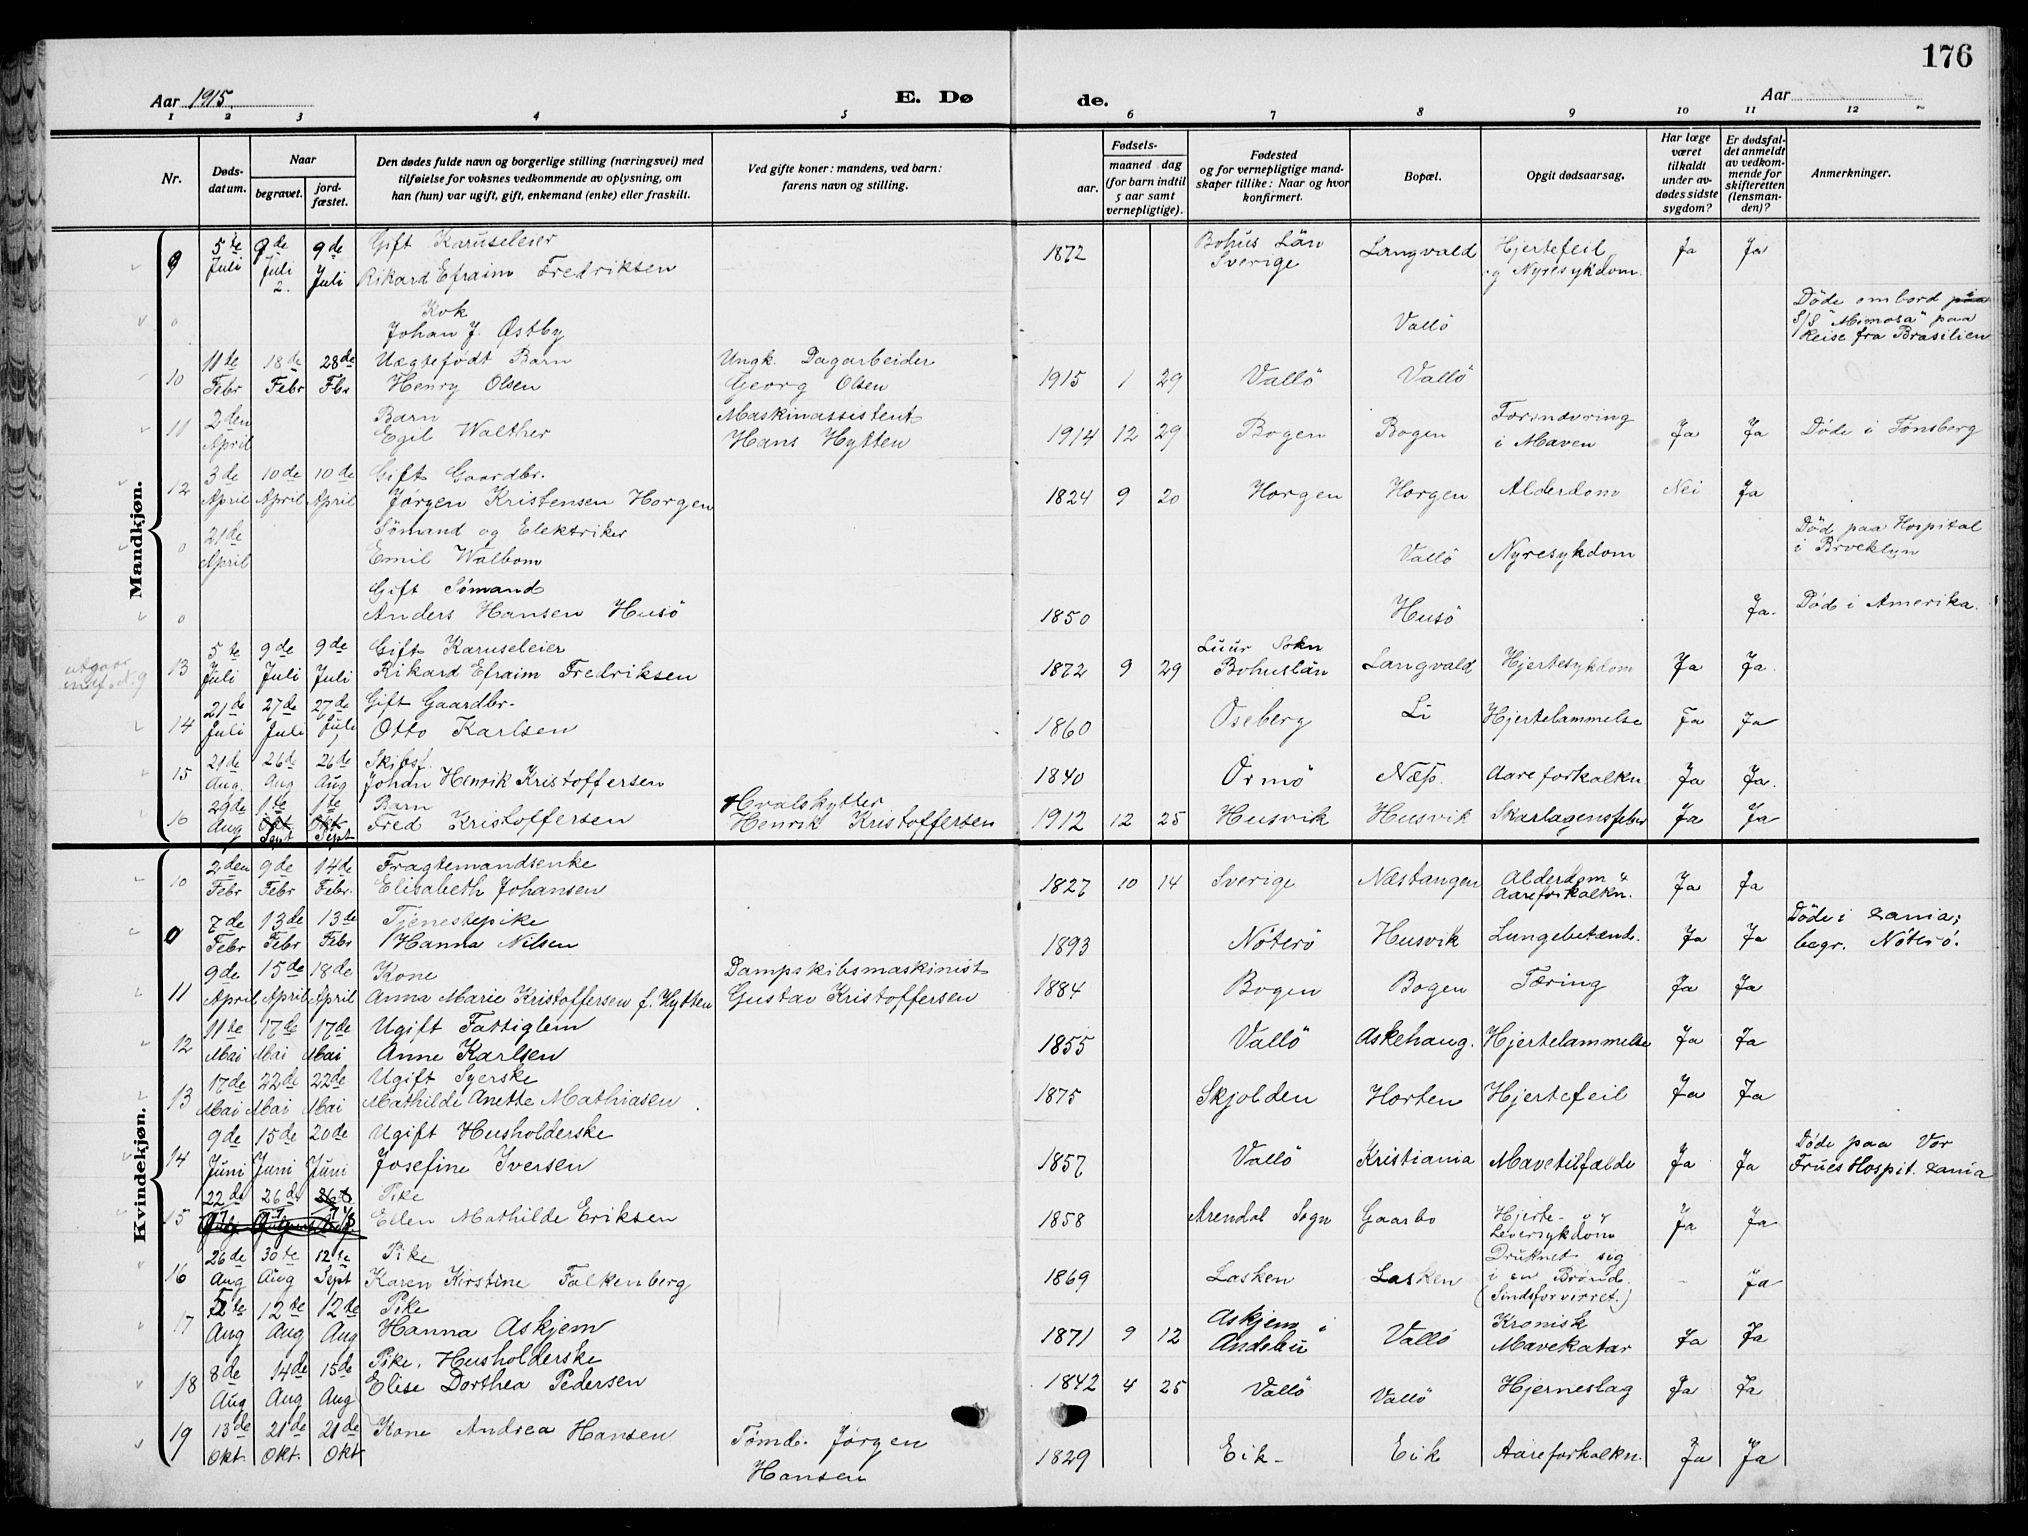 176
Aar 1915.
E. Dø
de.
Aar
1 2 3 4 5 6 7 8 9 10 11 12
Nr.
Døds-
datum.
Naar
begravet.
jord-
fæstet.
Den dødes fulde navn og borgerlige stilling (næringsvei) med
tilføielse for voksnes vedkommende av oplysning, om
han (hun) var ugift, gift, enkemand (enke) eller fraskilt.
Ved gifte koner: mandens, ved barn:
farens navn og stilling.
Fødsels-
aar.
maaned dag
(for barn indtil
5 aar samt
vernepligtige).
Fødested
og for vernepligtige mand-
skaper tillike: Naar og hvor
konfirmert.
Bopæl.
Opgit dødsaarsag.
Har læge
været
tilkaldt
under av-
dødes sidste
sygdom?
Er dødsfal-
det anmeldt
av vedkom-
mende for
skifteretten
(lensman-
den)?
Anmerkninger.
Mandkjøn.
9 5te Juli 9de Juli 9de Juli Gift Karuseleier
Rikard Efraim Fredriksen 1872 Bohus Län Sverige Langvald Hjertefeil og Nyresykdom. Ja Ja
0 Kok
Johan J. Østby Vallö Döde ombord i
S/S "Mimosa" paa
Reise fra Brasilien
10 11te Febr 18de Febr 28de Fbr Uægtefödt Barn
Henry Olsen Ungk. Dagarbeider
Georg Olsen 1915 1 29 Vallö Vallö
11 2den April Barn
Egil Walther Maskinassistent
Hans Hytten 1914 12 29 Bogen Bogen Forsndvring i Maven Ja Ja Döde i Tönsberg
12 3de April 10de April 10de April Gift Gaardbr.
Jørgen Kristensen Horgen 1824 9 20 Horgen Horgen Alderdom Nei Ja
0 21de April Sömand og Elektriker
Emil Walbom Vallö Nyresykdom Död paa Hospital
i Brooklyn
0 Gift Sömand
Anders Hansen Husö 1850 Husö Ja. Död i Amerika.
utgaar
13 5te Juli 9de Juli 9de Juli Gift Karuseleier
Rikard Efraim Fredriksen 1872 9 29 Luur Sokn
Bohuslän Langvald Hjertesykdom Ja Ja.
14 21de Juli 27de Juli 27de Juli Gift Gaardbr.
Otto Karlsen 1860 Oseberg Li Hjertelammelse Ja Ja
15 21de Aug. 26de Aug 26de Aug Skibsf.
Johan Henrik Kristoffersen 1840 Ormö Næs. Aareforkalkn. Ja Ja.
16 29de Aug 1te Sept 1te Sept Barn
Fred Kristoffersen Hvalskytter
Henrik Kristoffersen 1912 12 25 Husvik Husvik Skarlagensfeber Ja Ja
Kvindekjøn.
10 2den Febr 9de Febr 14de Febr. Fragtemandsenke
Elisabeth Johansen 1827 10 14 Sverige Næstangen Alderdom
Aareforkalkn. Ja Ja
0 7de Febr 13de Febr 13de Febr Tjenestepike
Hanna Nilsen 1893 Nöterö Husvik Lungebetænd. Ja Ja Döde i Xania;
begr. Nöterö.
11 9de April 15de April 18de April Kone
Anna Marie Kristoffersen f. Hytten Dampskibsmaskinist
Gustav Kristoffersen 1884 Bogen Bogen Tæring Ja Ja
12 11te Mai 17de Mai 17de Mai Ugift Fattiglem
Anne Karlsen 1855 Vallö Askehaug. Hjertelammelse Ja Ja
13 17de Mai 22de Mai 22de Mai Ugift Syerske
Mathilde Anette Mathiasen. 1875 Skjolden Horten Hjertefeil Ja Ja
14 9de Juni 15de Juni 20de Juni Ugift Husholderske
Josefine Iversen 1857 Vallö Kristiania Mavetilfælde Ja Ja Döde paa Vor
Frues Hospit. Xania
15 22de 26de Pike
Ellen Mathilde Eriksen 1858 Arendal Sogn Gaarbo Hjerte- og
Leversykdom Ja Ja
16 26de Aug 30te Aug 12te Sept Pike
Karen Kirstine Falkenberg 1869 Lasken Lasken Druknet sig
i en Brönd.
(Sindsforvirret.) - Ja
17 5te Aug 12te Aug 12te Aug Pike
Hanna Askjem 1871 9 12 Askjem i
Andebu Vallö Kronisk
Mavekatar Ja Ja
18 8de Aug 14de Aug 15de Aug Pike, Husholderske
Elise Dorthea Pedersen 1842 4 25 Vallö Vallö Hjerneslag Ja Ja
19 13de Okt. 21de Okt. 21de Okt Kone Andrea Hansen Tömdr. Jørgen
Hansen 1829 Eik- Eik Aareforkalkn. Ja Ja